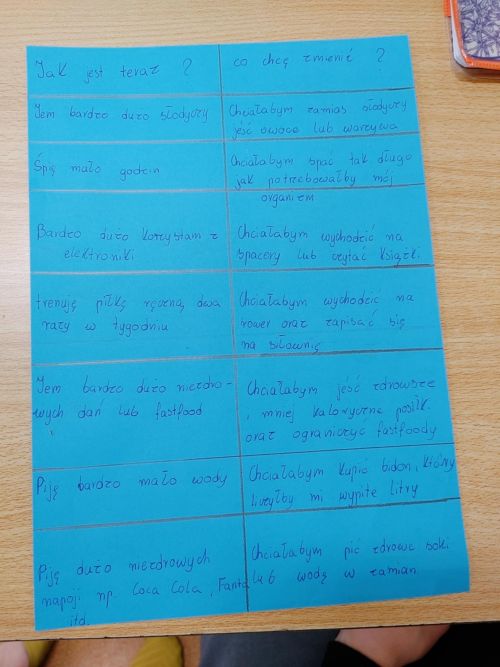 Jak jest teraz ?
co chcę zmienić ?
Jem bardzo dużo słodyczy
Chciałabym zamias słodyczy
jeść owoce lub warzywa
Śpię mało godzin
Chciałabym spać tak długo
jak potrzebowałby mój
organizm
Bardzo dużo korzystam z
elektroniki
Chciałabym wychodzić na
spacery lub czytać książki.
trenuję piłkę ręczną dwa
razy w tygodniu
Chciałabym wychodzić na
rower oraz zapisać się
na siłownię
Jem bardzo dużo niezdro-
wych dań lub fastfood
Chciałabym jeść zdrowsze
, mniej kaloryczne posiłk.
oraz ograniczyć fastfoody
Piję bardzo mało wody
Chciałabym kupić bidon, który
liczyłby mi wypite litry
Piję dużo niezdrowych
napoj. np. Coca Cola, Fanta
itd.
Chciałabym pić zdrowe soki
lub wodę w zamian.